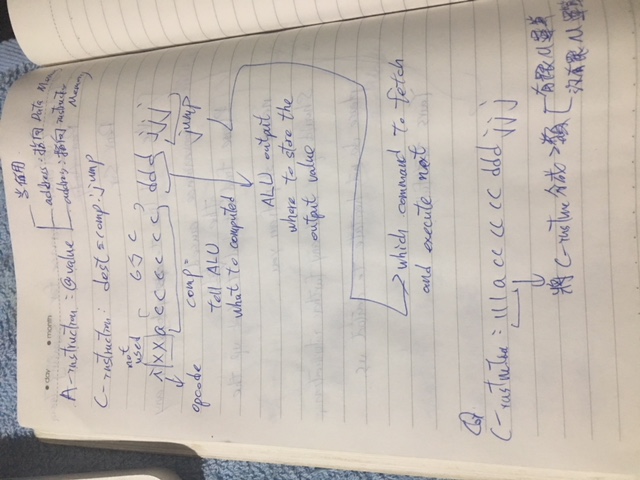 day month
當值用
A-instruction: @value
address: 指向 Data Memory
address: 指向 instruction Memory
C-instruction: dest=comp;jump
not used
6個 C
i xx a cc cc cc ddd jjj
opcode
comp:
tell ALU
what to computed
jump
ALU output
where to store the
output value
which command to fetch
and execute next
C-instruction: 111 a cc cc cc ddd jjj
將 C-instruction 分成 2 類
有跟 M 運算
沒有跟 M 運算